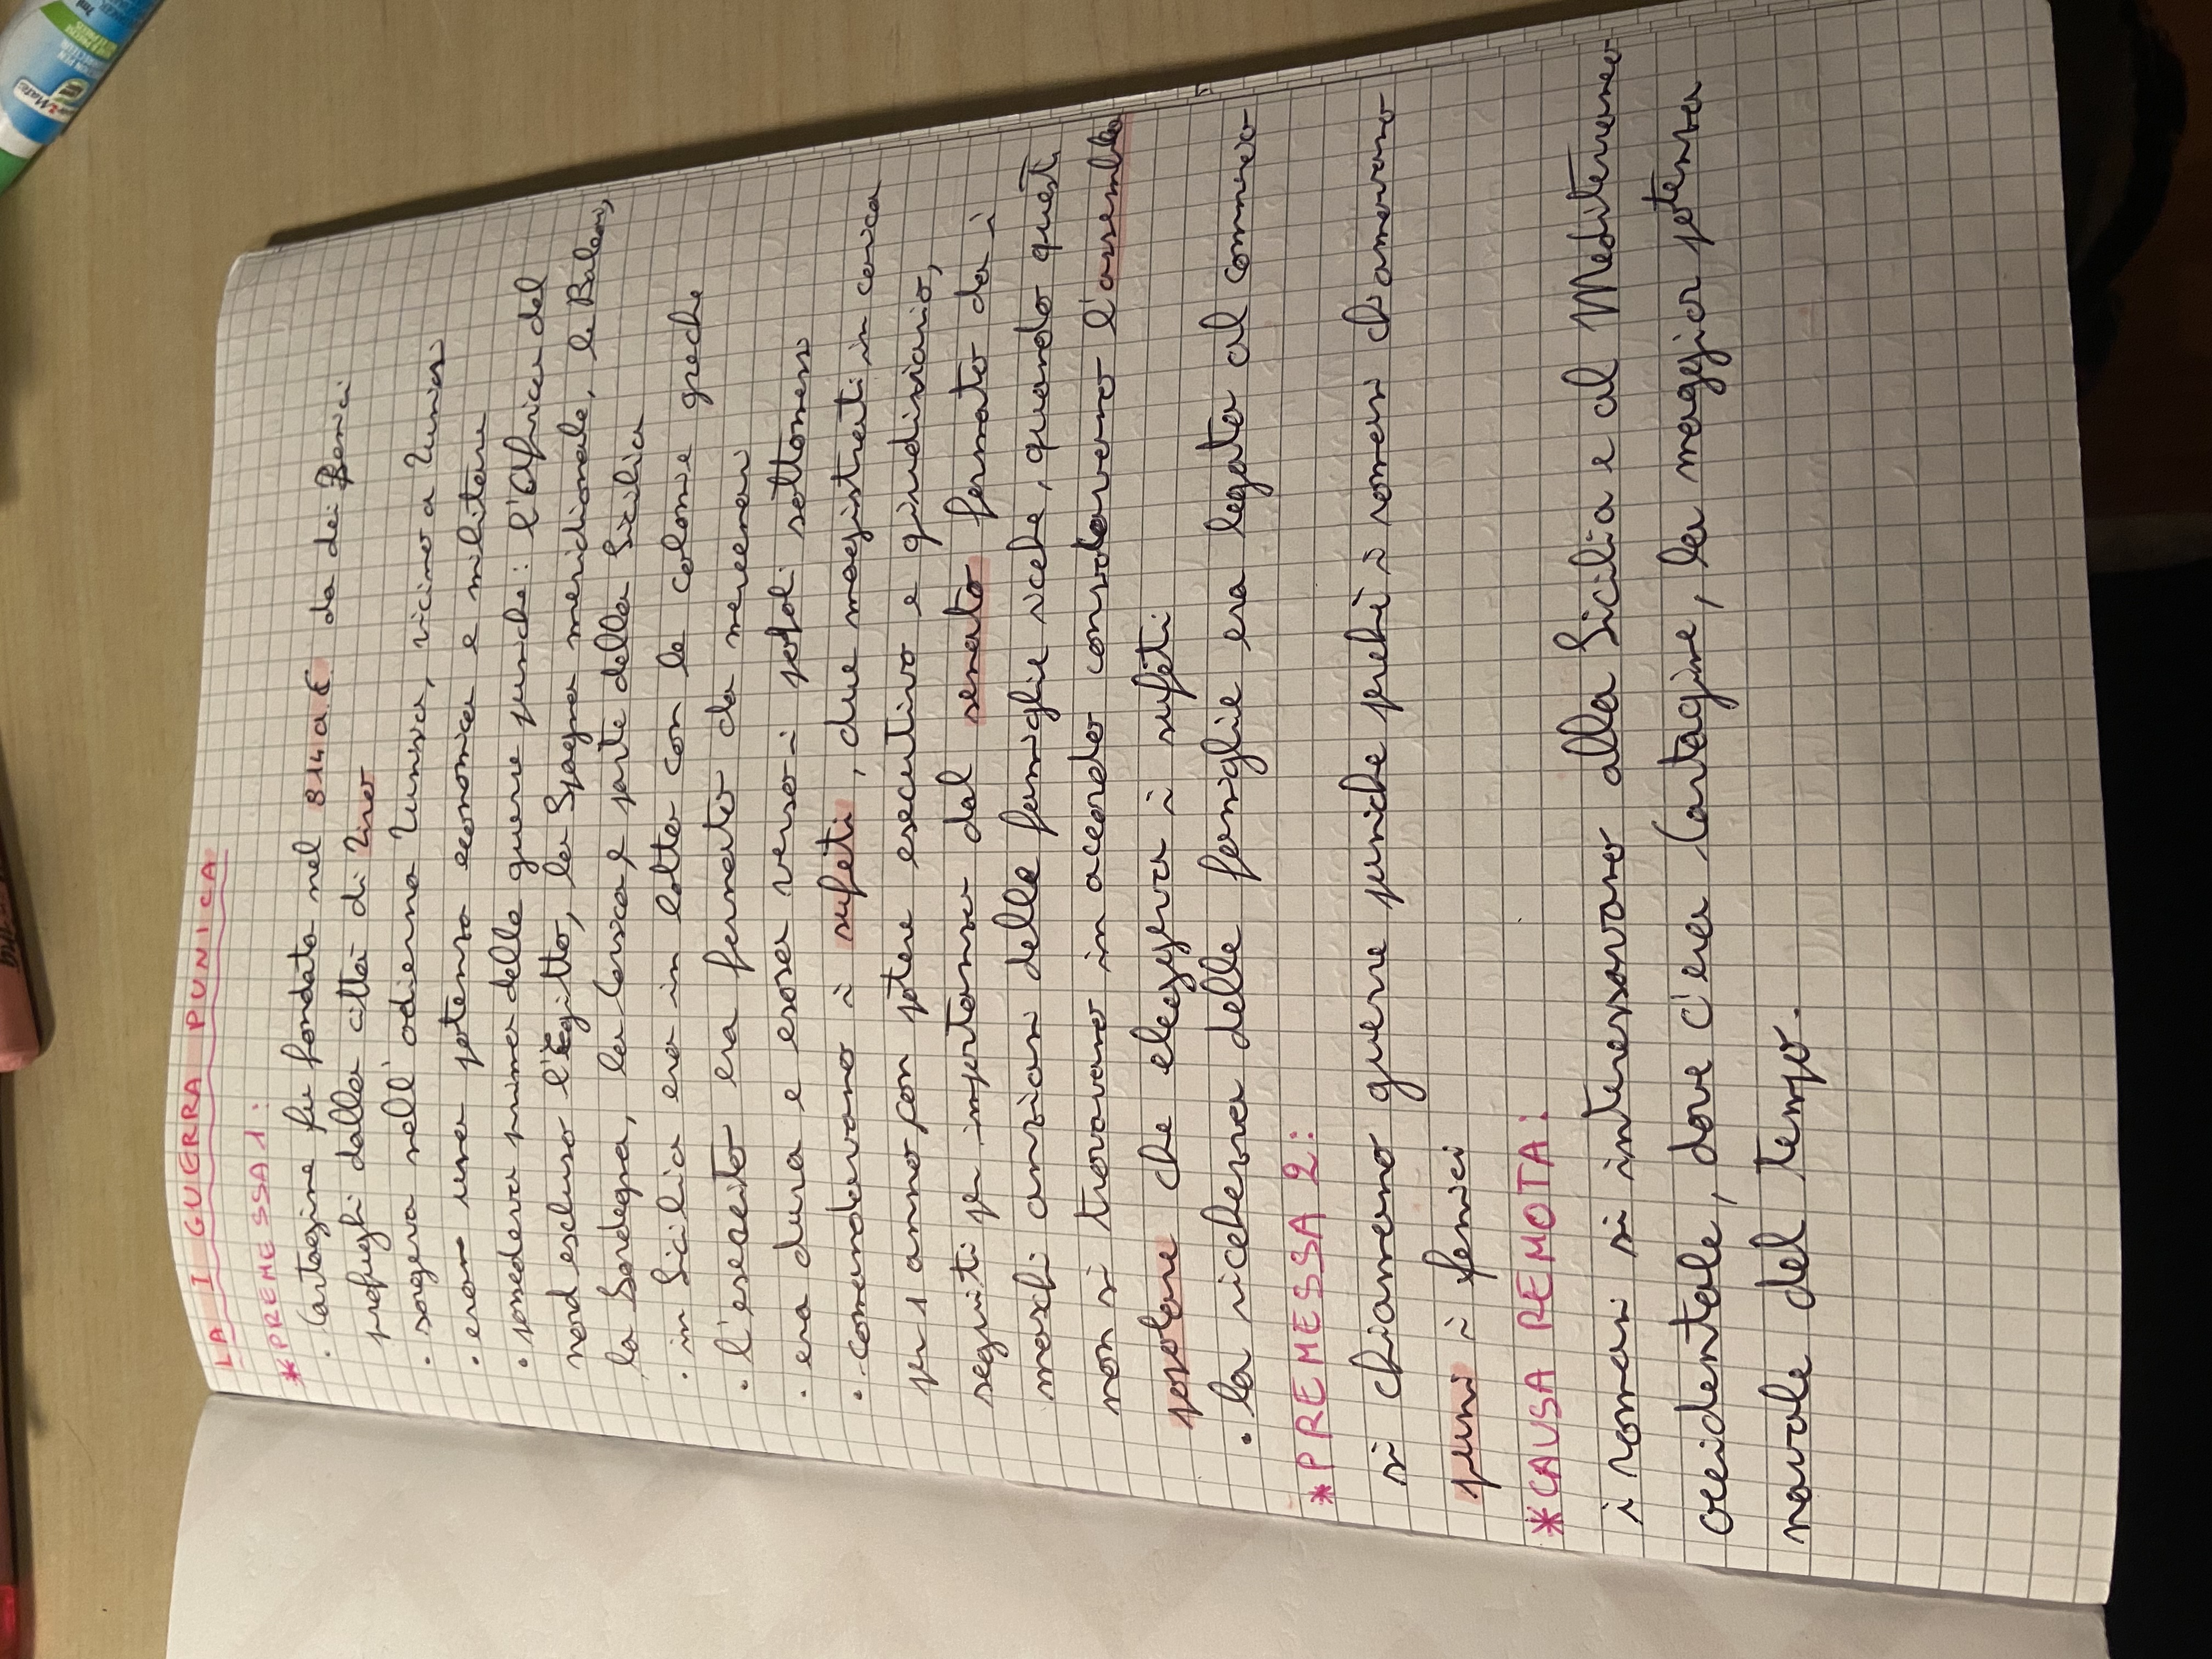 LA I GUERRA PUNICA
*PREMESSA 1:
. Cartagine fu fondata nel 814 a.C da dei Fenici
profughi dalla città di Tiro
. sorgeva nell'odierna Tunisia, vicino a Tunisi
. era una potenza economica e militare
. possedeva prima delle guerre puniche: l'Africa del
nord escluso l'Egitto, la Spagna meridionale, le Baleari,
la Sardegna, la Corsica e parte della Sicilia
. in Sicilia era in lotta con le colonie greche
. l'esercito era formato da mercenari
. era dura e esosa verso i popoli sottomessi
. comandavano i sufeti, due magistrati in carica
per 1 anno con potere esecutivo e giudiziario,
seguiti per importanza dal senato formato da i
maschi anziani delle famiglie ricche, quando questi
non si trovavano in accordo l'assemblea
popolare che eleggeva i sufeti
. la ricchezza delle famiglie era legata al commercio
*PREMESSA 2:
si chiamano guerre puniche perchè i romani chiamavano
puni i fenici
*CAUSA REMOTA:
i romani si interessavano alla Sicilia e al Mediterraneo
occidentale, dove c'era Cartagine, la maggior potenza
navale del tempo.